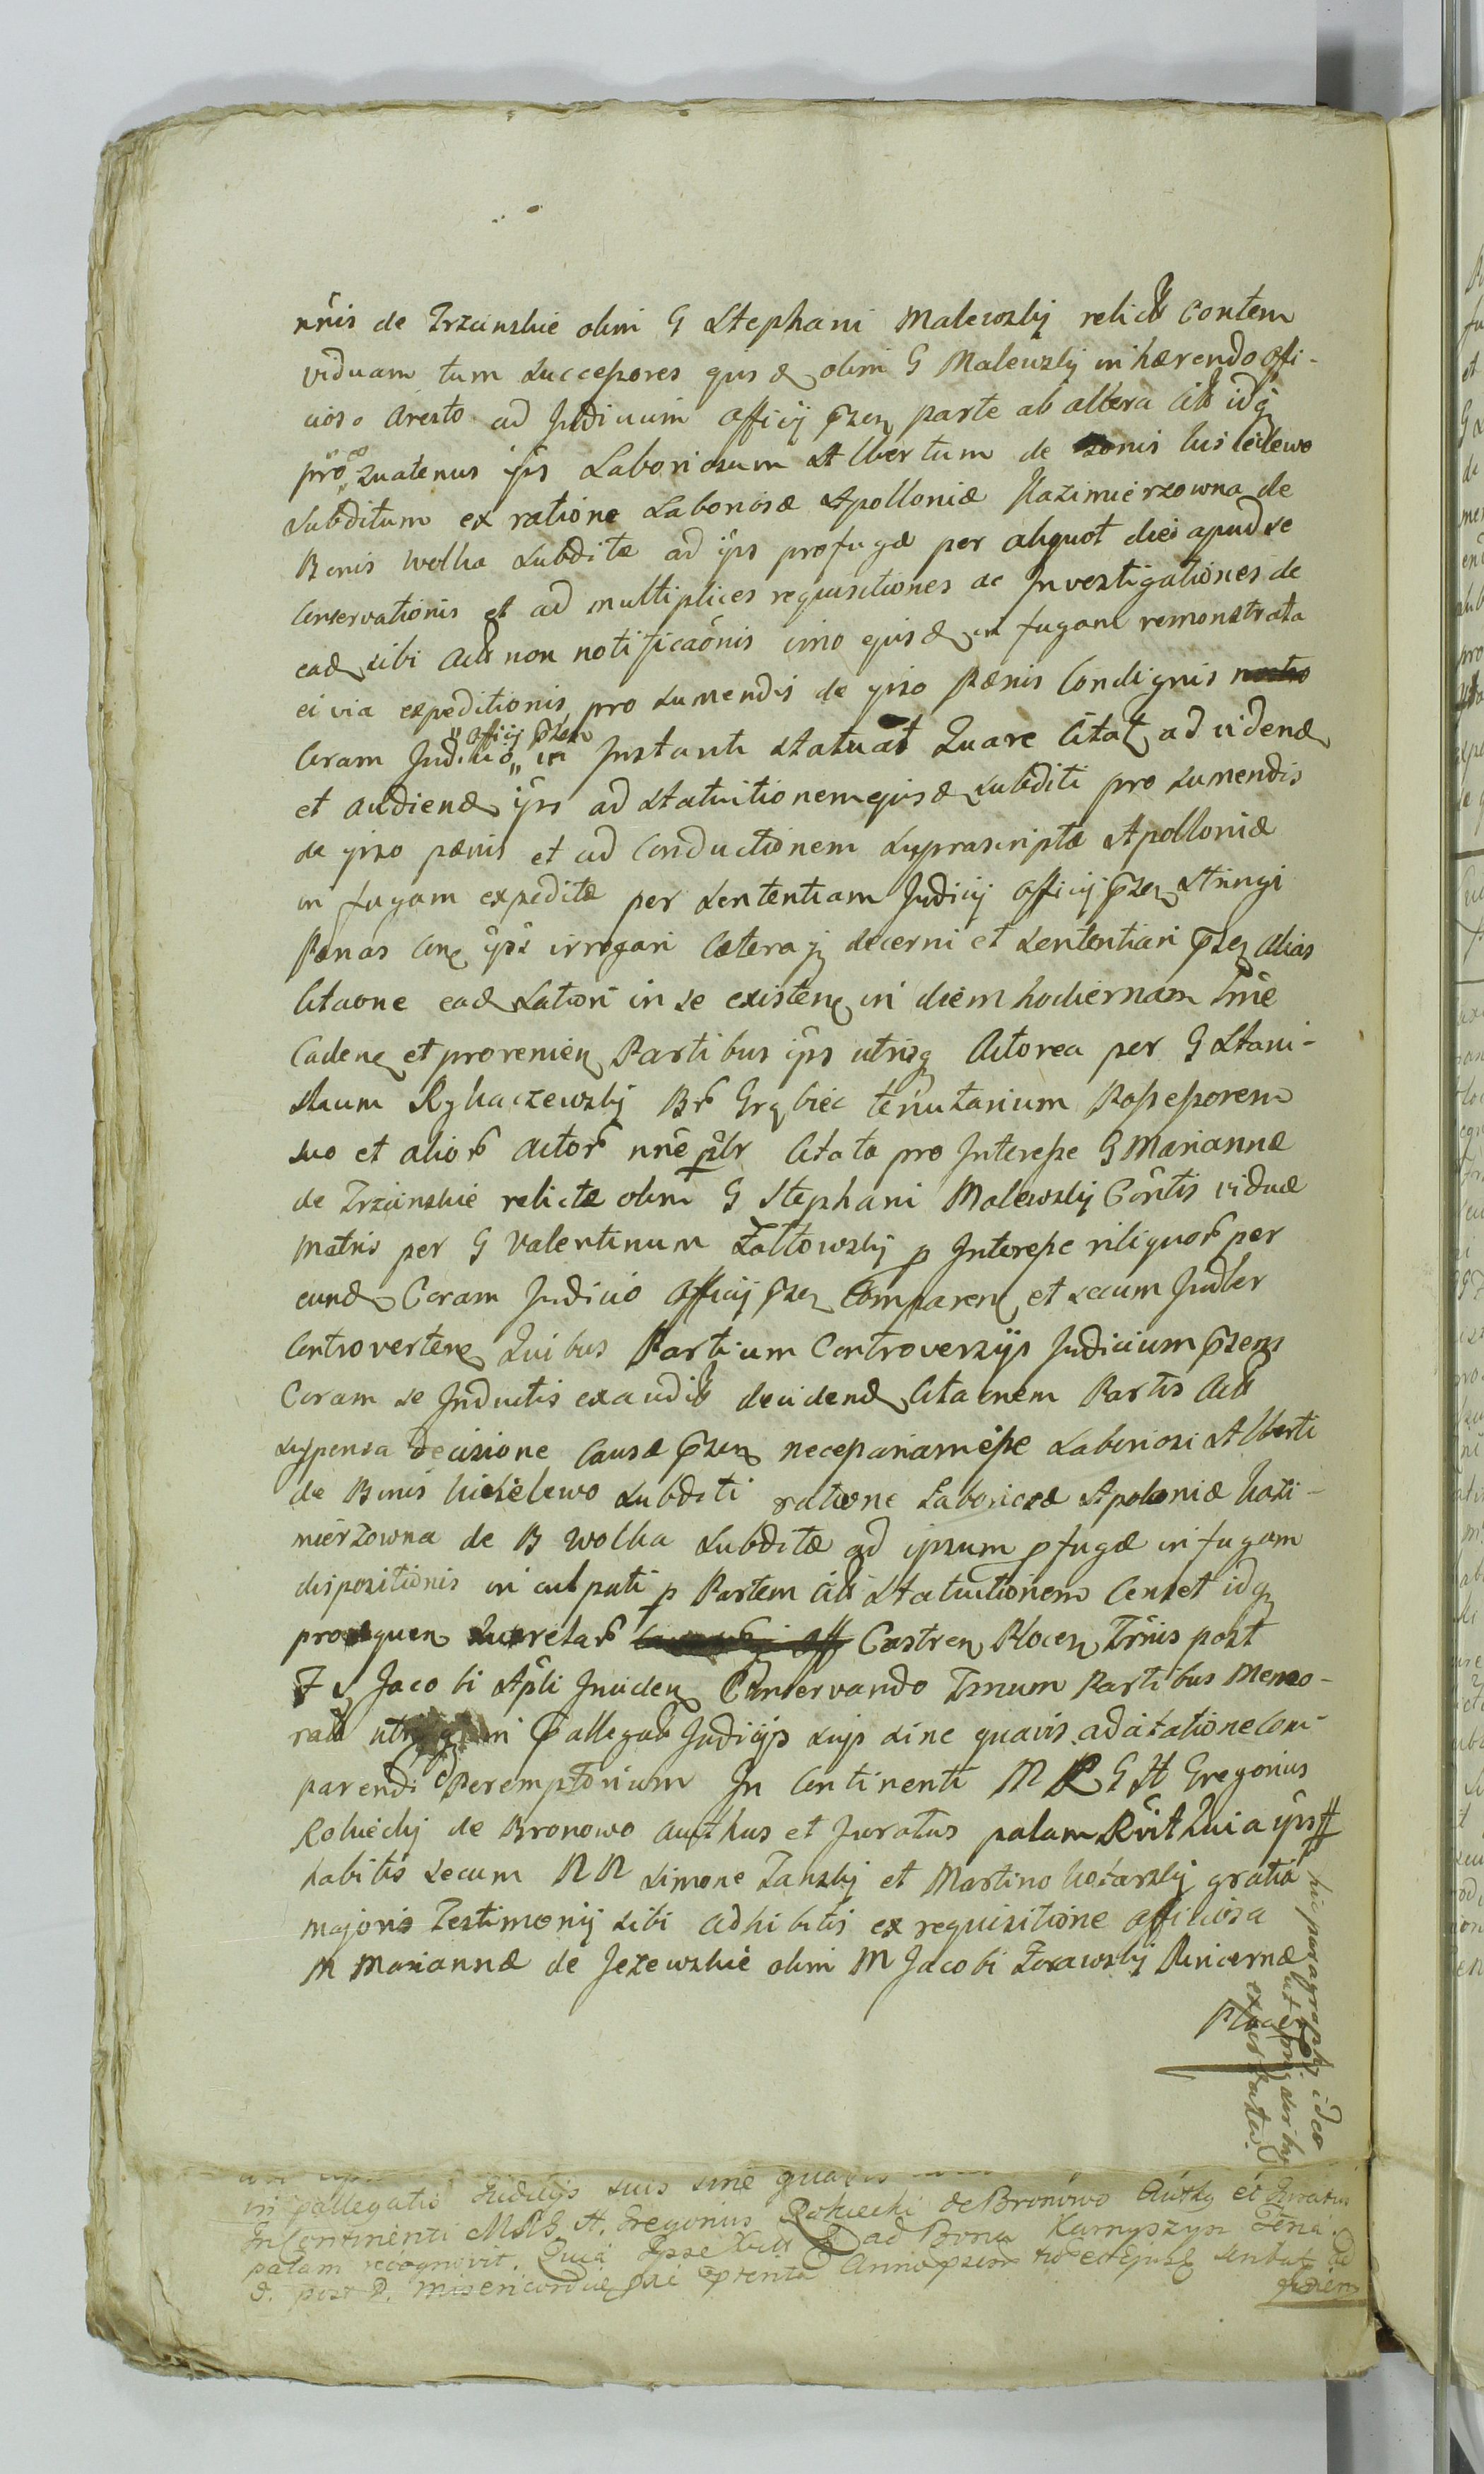 nris de Trzcinskie olim G Stephani Malewskij relictă Contem
viduam tum Successores ejusd olim G Malewskij inhærendo offi-
cioso Aresto ad Judicium Officij præsen parte ab altera Citt idq
quatenus ips Laboriosum Albertum de Bonis Kisielewo
Subditum ex ratione Laboriosæ Apolloniæ Kazimierzowna de
Bonis Wolka Subditæ ad ips profugæ per aliquot dies apud se
Conservationis et ad multiplices requisitiones ac Investigationes de
ead sibi Act non notificaônis imo ejusd in fugam remonstrata
ei via expeditionis pro sumendis de ipso Pænis Condignis
Coram Judicio Officij præsen in Instanti statuat Quare Citat ad videnď
et audienď ips ad statuitionem ejusd subditi pro sumendis
de ipso pænis et ad Conductionem suprascriptæ Apolloniæ
in fugam expeditæ per Sententiam Judicij Officij præsen stringi
Pænas Con ips irrogari Cæteraq decerni et Sententiari præsen alias
Citaone ead Latiori in se existen in diem hodiernam Trie
Caden et provenien Partibus ips utrisq Actorea per G Stani-
slaum Rykaczewskij Br Grąbiec tenutarium Possessorem
suo et alior Actor nne Citata pro Interesse G Mariannæ
de Trzcinskie relictæ olim G Stephani Malewskij Contis viduæ
Matris per G Valentinum Zołtowskij p Interesse reliquor per
eund Coram Judicio Officij præsen Comparen et secum Judler
Controverten Quibus Partium Controversijs Judicium præsens
Coram se Inductis exauditis decidend Citaonem Partis Act
suspensa decisione Causæ præsen necessariam esse Laboriosi Alberti
de Bonis Kisielewo Subditi ratione Laboriosæ Apoloniæ Kazi-
mierzowna de B Wolka Subditæ ad ipsum pfugæ in fugam
dispositionis inculpati p Partem Citt Statuitionem Censet idq
Castren Plocen Trnis post
F S Jacobi Apli Inciden Conservando Trnum Partibus Memo-
rat in pallegat Judicijs suis sine quavis adcitatione Com-
parendi Peremptorium In Continenti M R G H Gregorius
Rokicki de Bronowo Authus et Juratus palam Rvit Quia ips
habitis secum NN Simone Zanskij et Martino Kotarskij gratia
majoris Testimonij sibi adhibitis ex requisitione officiosa
M Mariannæ de Jezewskie olim M Jacobi Zorawskij Pincernæ
huc paragraphus ideo
in pallegatis Judicijs suis sine quavis
In Continenti MRG H. Gregorius Rokicki de Bronowo Authq et Juratus
palam recognovit. Quia Ipse ad Bona Karnyszyn
d. post D. Misericordiæ